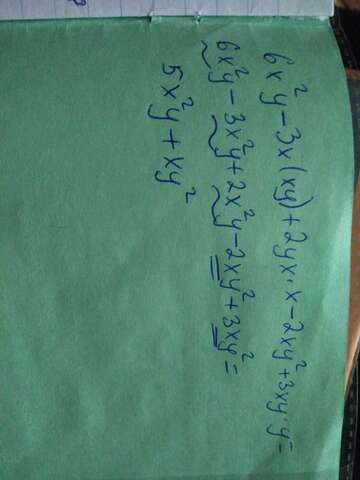 6x²y-3x(xy)+2yx·x-2xy²+3xy·y=
6x²y-3x²y+2x²y-2xy²+3xy²=
5x²y+xy²